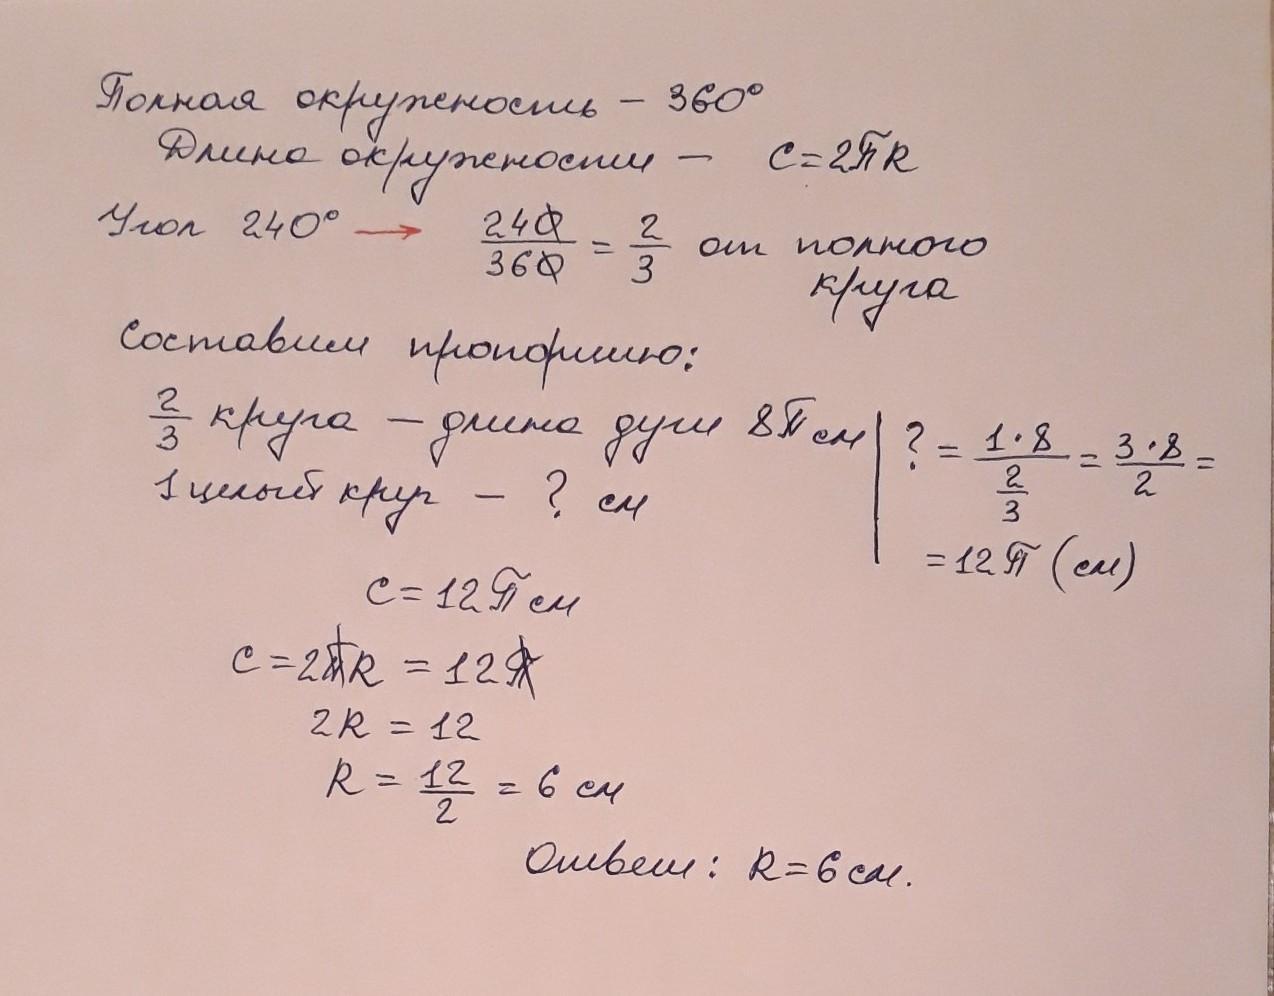 Полная окружность – 360°
Длина окружности – C=2πR
Угол 240° → 240/360 = 2/3 от полного
круга
Составим пропорцию:
2/3 круга – длина дуги 8π см
1 целый круг – ? см
? = 1·8/(2/3) = 3·8/2 =
=12π (см)
C=12π см
C=2πR = 12π
2R = 12
R = 12/2 = 6 см
Ответ: R=6см.